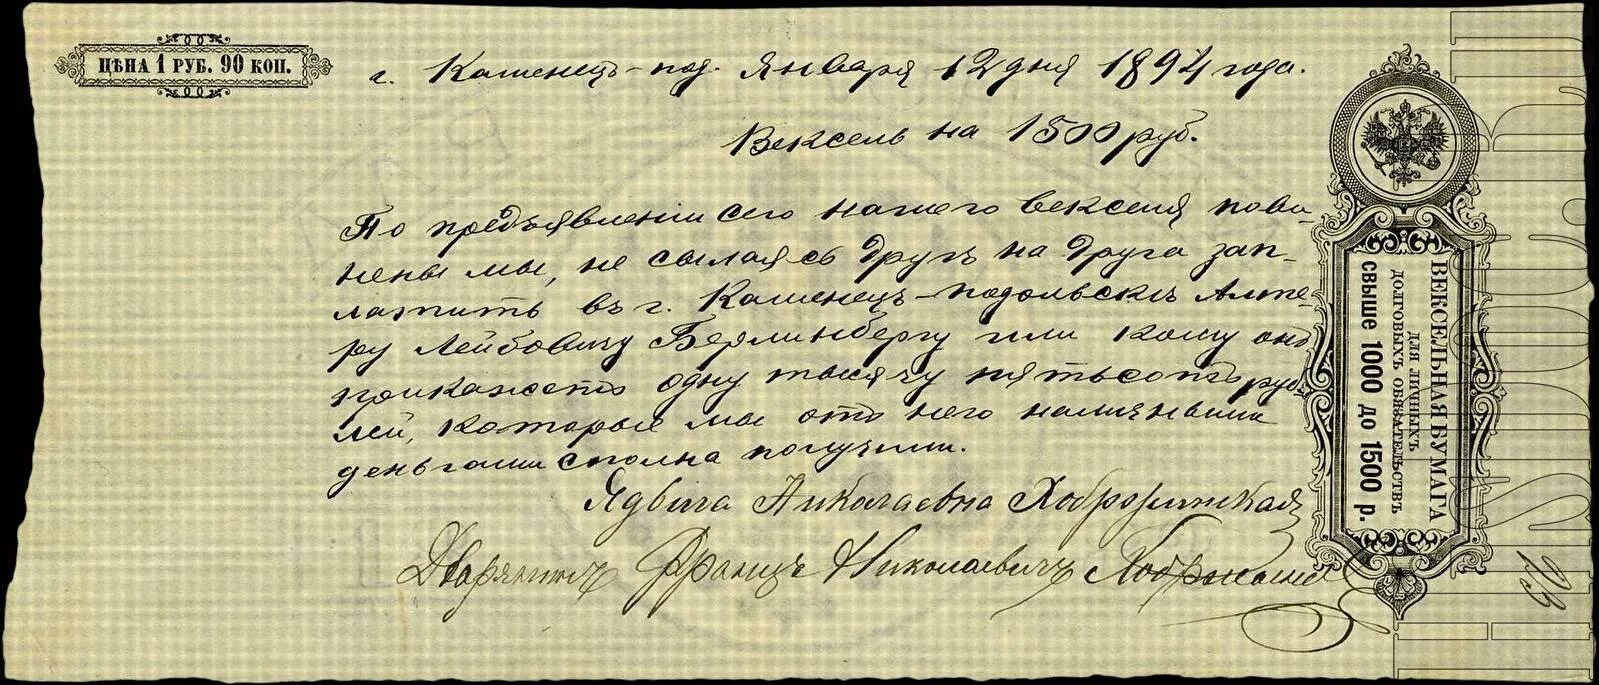 ЦѢНА 1 РУБ. 90 КОП.
г. Каменецъ-под. Января 12 дня 1894 года.
Вексель на 1500 руб.
По предъявленіи сего нашего векселя пови-
нены мы, не сылаясь Другъ на Друга зап-
латить въ г. Каменецъ-подольскъ Алте-
ру Лейбовичу Берлинбергу или кому онъ
прикажетъ одну тысячу пятьсотъ руб
лей, которые мы отъ него наличными
деньгами сполна получили.
Ядвига Николаевна
Дворянинъ Францъ Николаевичъ
ВЕКСЕЛЬНАЯ БУМАГА
ДЛЯ ЛИЧНЫХЪ
ДОЛГОВЫХЪ ОБЯЗАТЕЛЬСТВЪ
СВЫШЕ 1000 ДО 1500 Р.